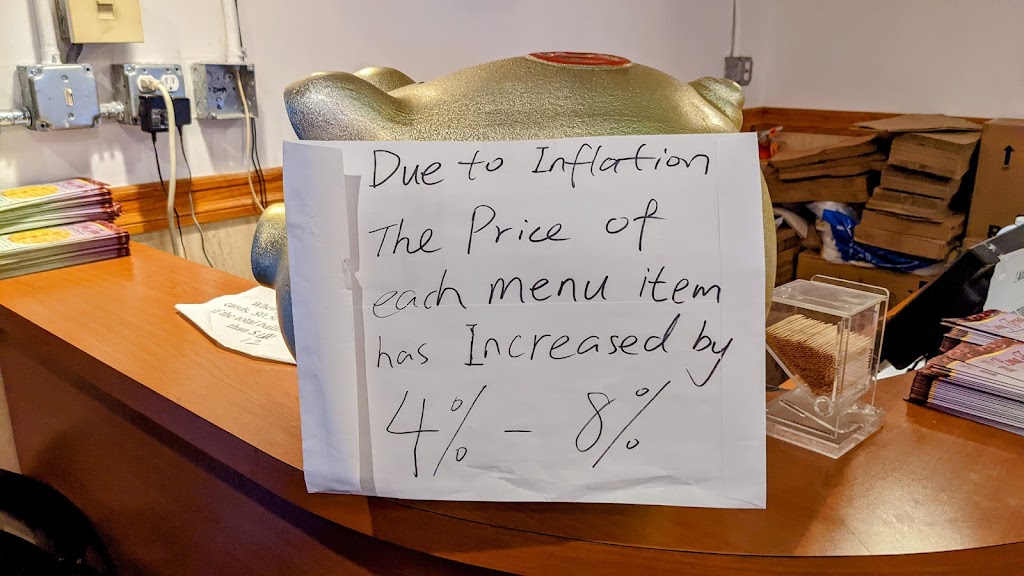 Due to Inflation
The Price of
each menu item
has Increased by
4% - 8%